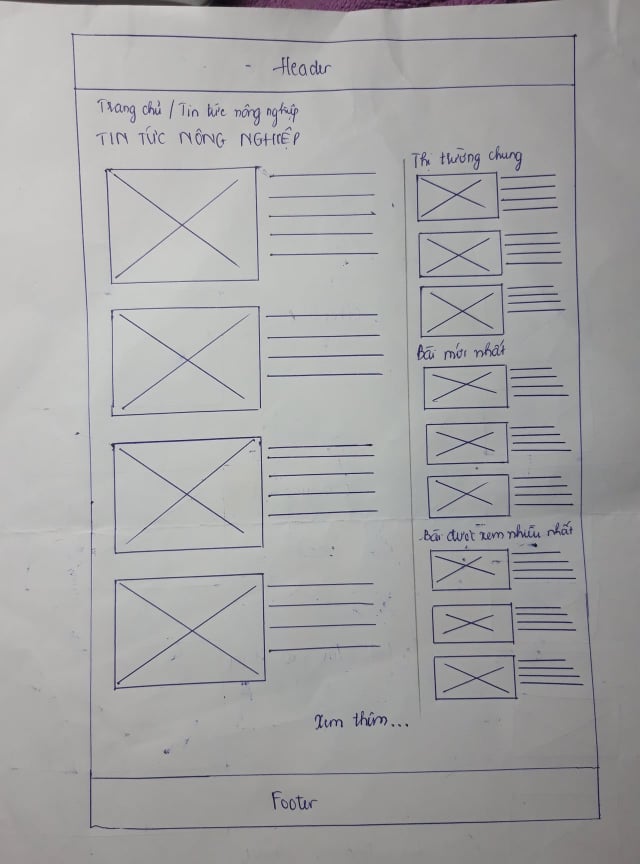 Header
Trang chủ / Tin tức nông nghiệp
TIN TỨC NÔNG NGHIỆP
Thị trường chung
Bài mới nhất
Bài được xem nhiều nhất
Xem thêm...
Footer